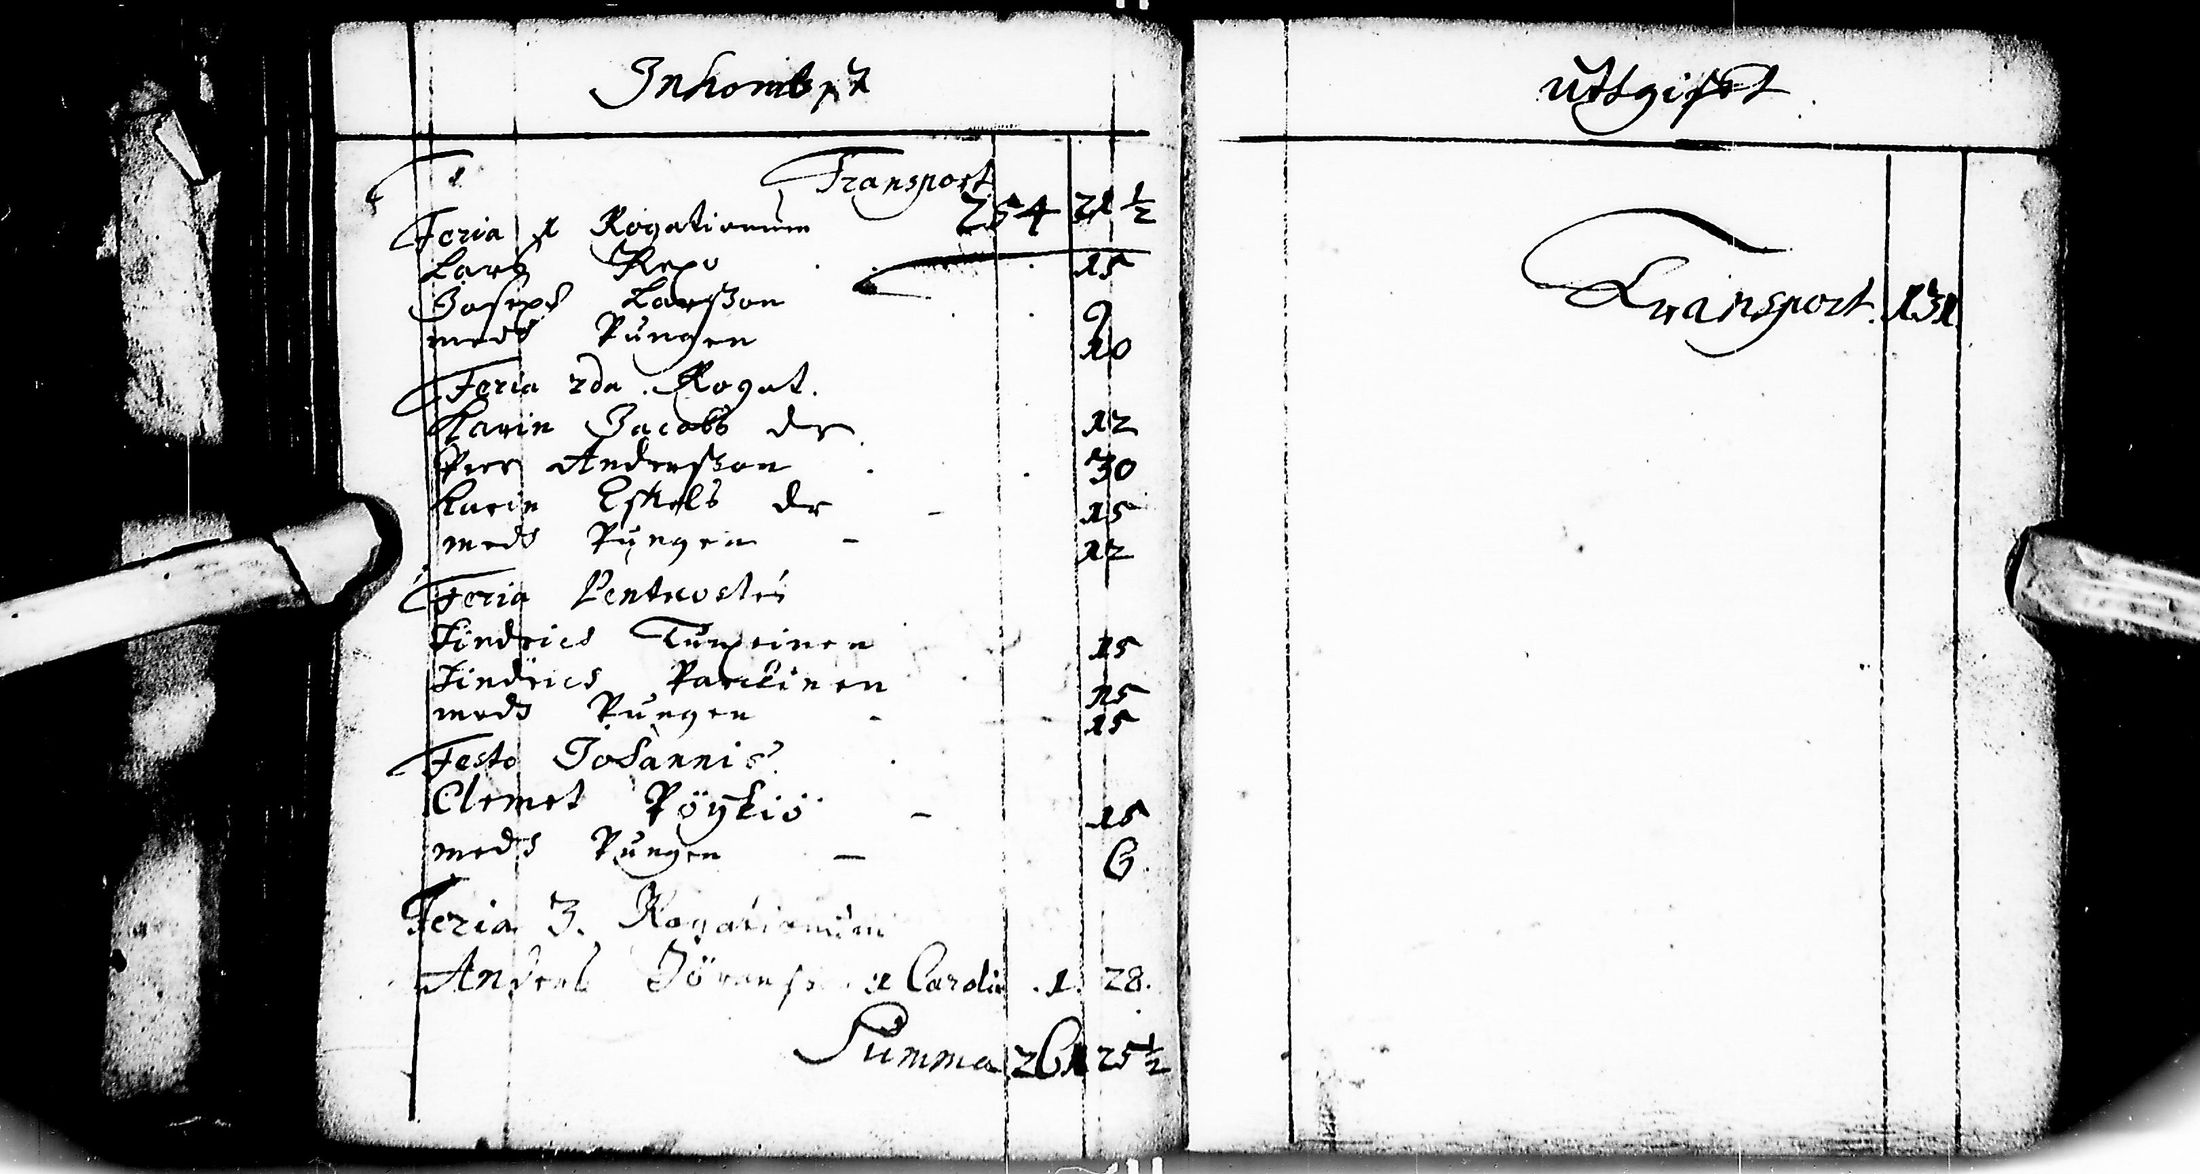 Inkombst
Transport 254 21 1/2
Feria 1 Rogationum
Lars Repo 15
Joseph Larsson 9
medh Pungen 10
Feria 2da Rogat.
Karin Jacobs dr 12
Pær Andersson 30
Karin Eskels dr - 15
medh Pungen - 12
Feria Pentecostes
Hindrich Turpeinen 15
Hindrich Parckinen 15
medh Pungen - 15
Festo Johannis
Clemet Pöykiö - 15
medh Pungen - 6
Feria 3. Rogationum
Anders Jöranss 1 Carolin .1. 28.
Summa 261 25 1/2
Utgifft
Transport. 131